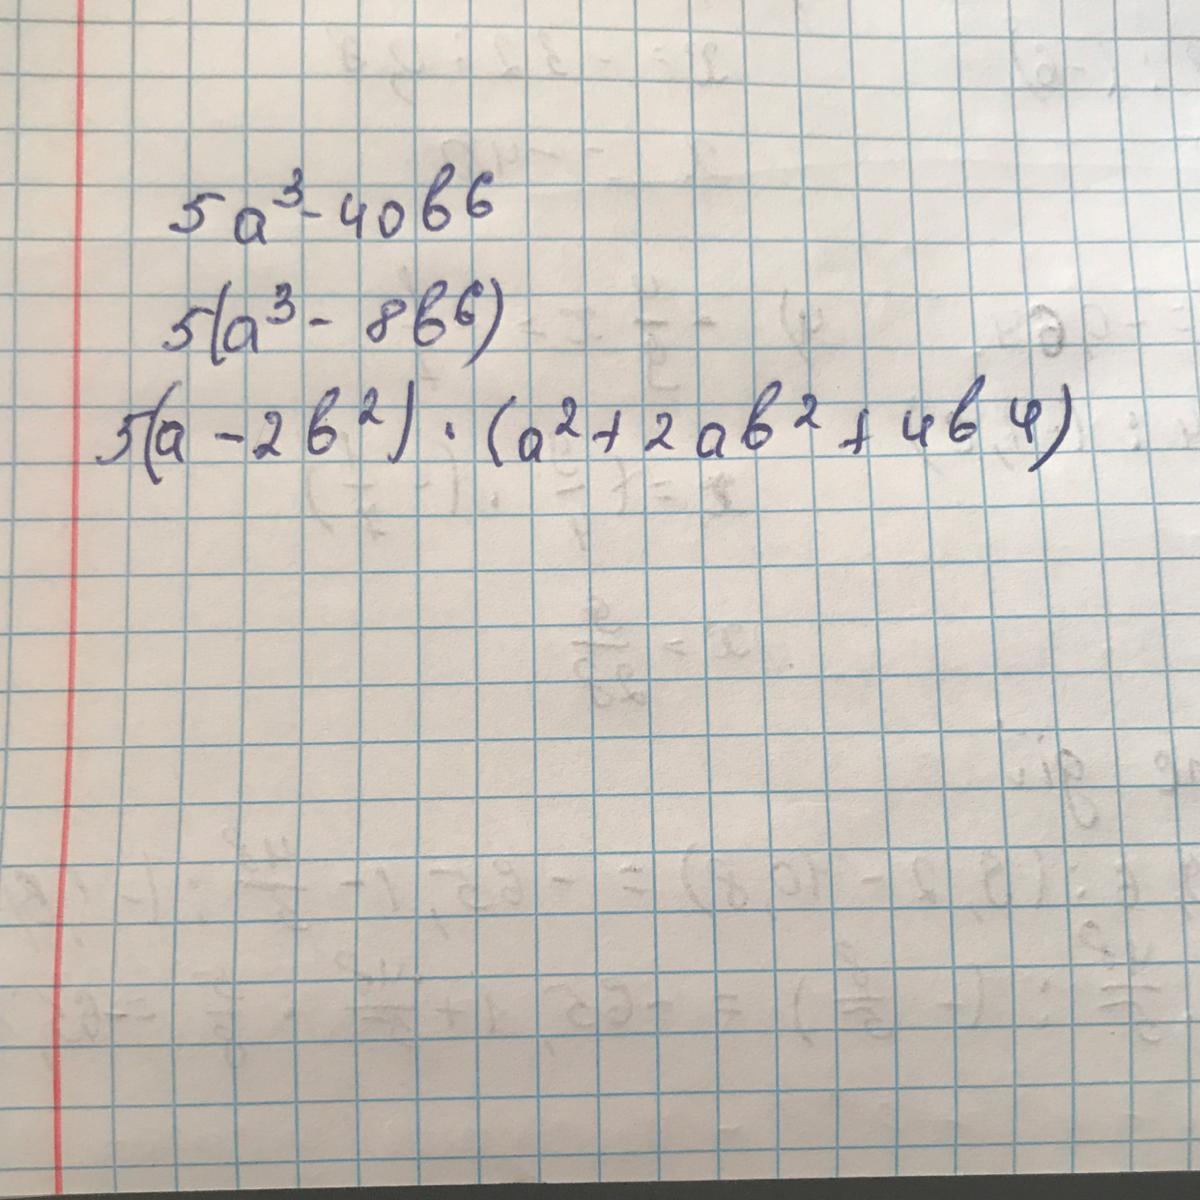 5a³-40b6
5(a³- 8b⁶)
5(a-2b²)·(a²+2ab²+4b4)